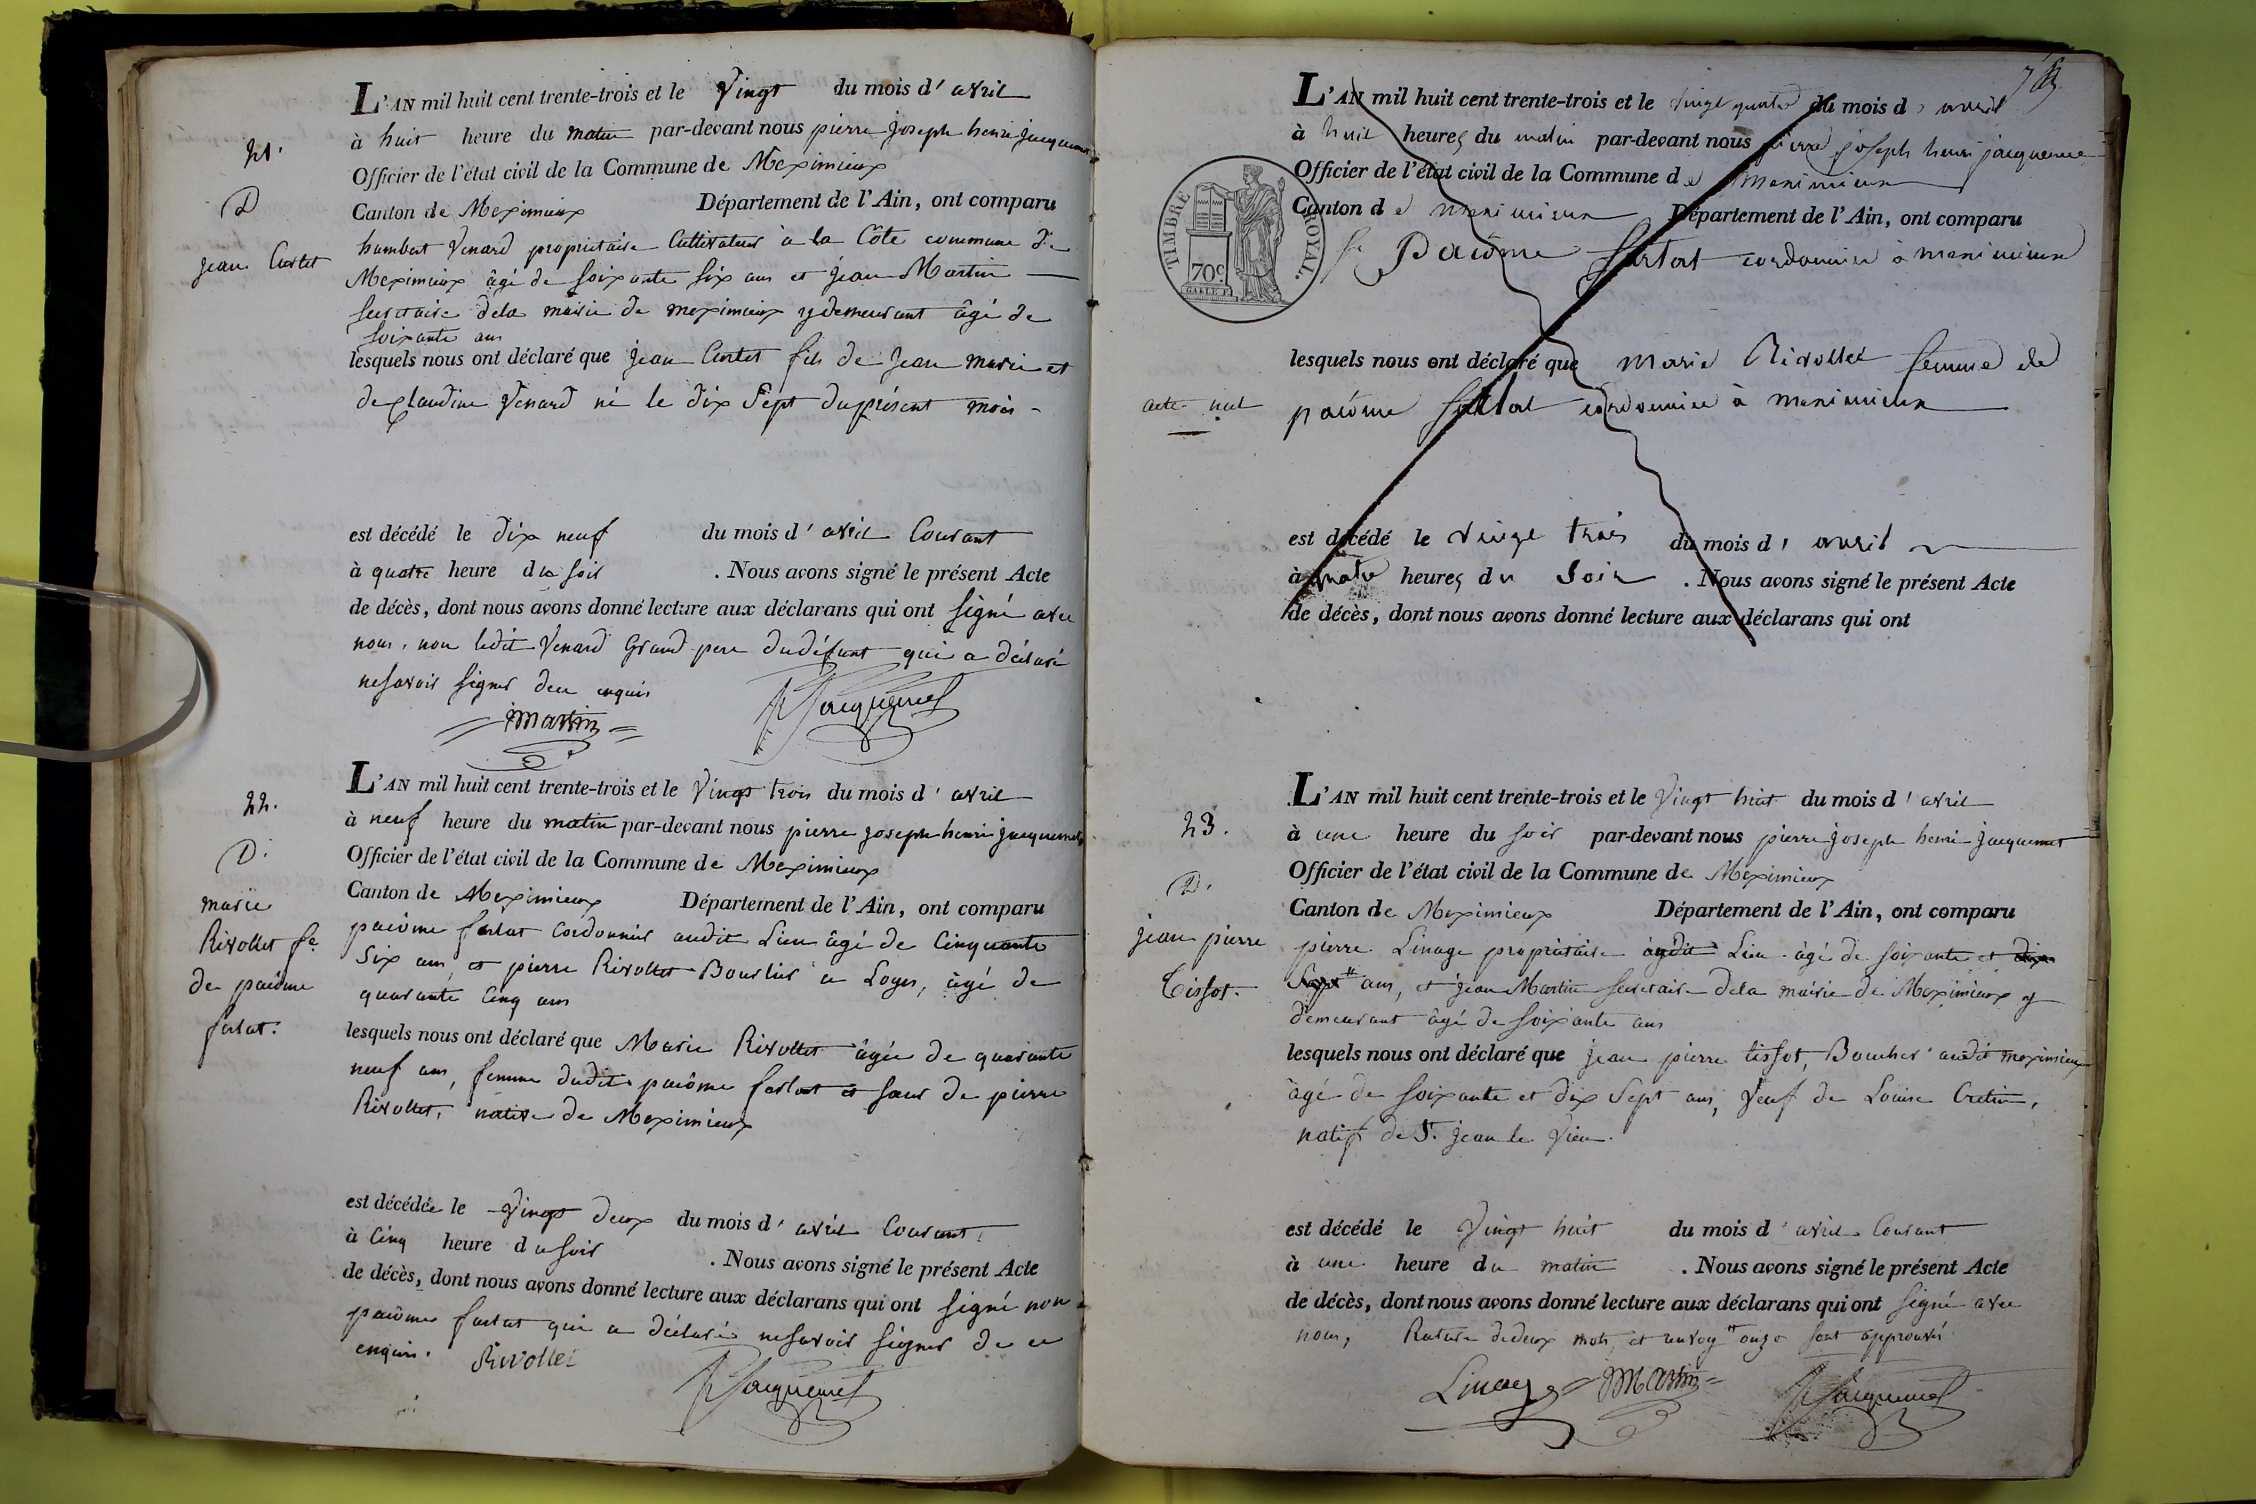 21.
D
jean Curtet
L'AN mil huit cent trente-trois et le Vingt du mois d' avril
à huit heure du matin par-devant nous pierre joseph henri jacquemet
Officier de l'état civil de la Commune de Meximieux
Canton de Meximieux Département de l'Ain, ont comparu
humbert Venard propriétaire Cultivateur à la Côte commune de
Meximieux âgé de soixante six ans et jean Martin
secretaire dela mairie de meximieux y demeurant âgé de
soixante ans
lesquels nous ont déclaré que jean Curtet fils de jean marie et
de Claudine Venard né le dix sept duprésent mois
est décédé le dix neuf du mois d' avril Courant
à quatre heure du soir . Nous avons signé le présent Acte
de décès, dont nous avons donné lecture aux déclarans qui ont signé avec
nous, non ledit Venard Grand pere dudéfunt qui a déclaré
nesavoir signer dece enquis
Martin Jacquemet
22.
D.
marie
Rivollet fe
de paicôme
farlat.
L'AN mil huit cent trente-trois et le Vingt trois du mois d' avril
à neuf heure du matin par-devant nous pierre joseph henri jacquemet
Officier de l'état civil de la Commune de Meximieux
Canton de Meximieux Département de l'Ain, ont comparu
pacôme farlat Cordonnier audit Lieu âgé de Cinquante
Six ans, et pierre Rivollet Bourlier à Loyes, âgé de
quarante Cinq ans
lesquels nous ont déclaré que Marie Rivollet âgée de quarante
neuf ans, femme dudit pacôme farlat et sœur de pierre
Rivollet, native de Meximieux
est décédée le Vingt deux du mois d' avril Courant
à Cinq heure du soir . Nous avons signé le présent Acte
de décès, dont nous avons donné lecture aux déclarans qui ont signé non
pacôme farlat qui a déclaré nesavoir signer de ce
enquis. Rivollet Jacquemet
TIMBRE ROYAL.
70c
acte nul
L'AN mil huit cent trente-trois et le vingt quatre du mois d' avril
à huit heures du matin par-devant nous pierre joseph henri jacquemet
Officier de l'état civil de la Commune de Meximieux
Canton de meximieux Département de l'Ain, ont comparu
Pacôme farlat cordonnier à meximieux
lesquels nous ont déclaré que Marie Rivollet femme de
pacôme farlat cordonnier à meximieux
est décédé le vingt trois du mois d' avril
à quatre heures du Soir . Nous avons signé le présent Acte
de décès, dont nous avons donné lecture aux déclarans qui ont
23.
D.
jean pierre
Tissot.
L'AN mil huit cent trente-trois et le Vingt huit du mois d' avril
à une heure du soir par-devant nous pierre joseph henri jacquemet
Officier de l'état civil de la Commune de Meximieux
Canton de Meximieux Département de l'Ain, ont comparu
pierre Linage propriétaire audit Lieu âgé de soixante et dix
sept ans, et jean Martin secretaire dela mairie de Meximieux y
demeurant âgé de soixante ans
lesquels nous ont déclaré que jean pierre tissot, Boucher audit meximieux
âgé de soixante et dix Sept ans, Veuf de Louise Cretin,
natif de St. jean le Vieux.
est décédé le Vingt huit du mois d' avril Courant
à une heure du matin . Nous avons signé le présent Acte
de décès, dont nous avons donné lecture aux déclarans qui ont signé avec
nous, Rature dedeux mots, et renvoy onze sont approuvés
Linage Martin Jacquemet